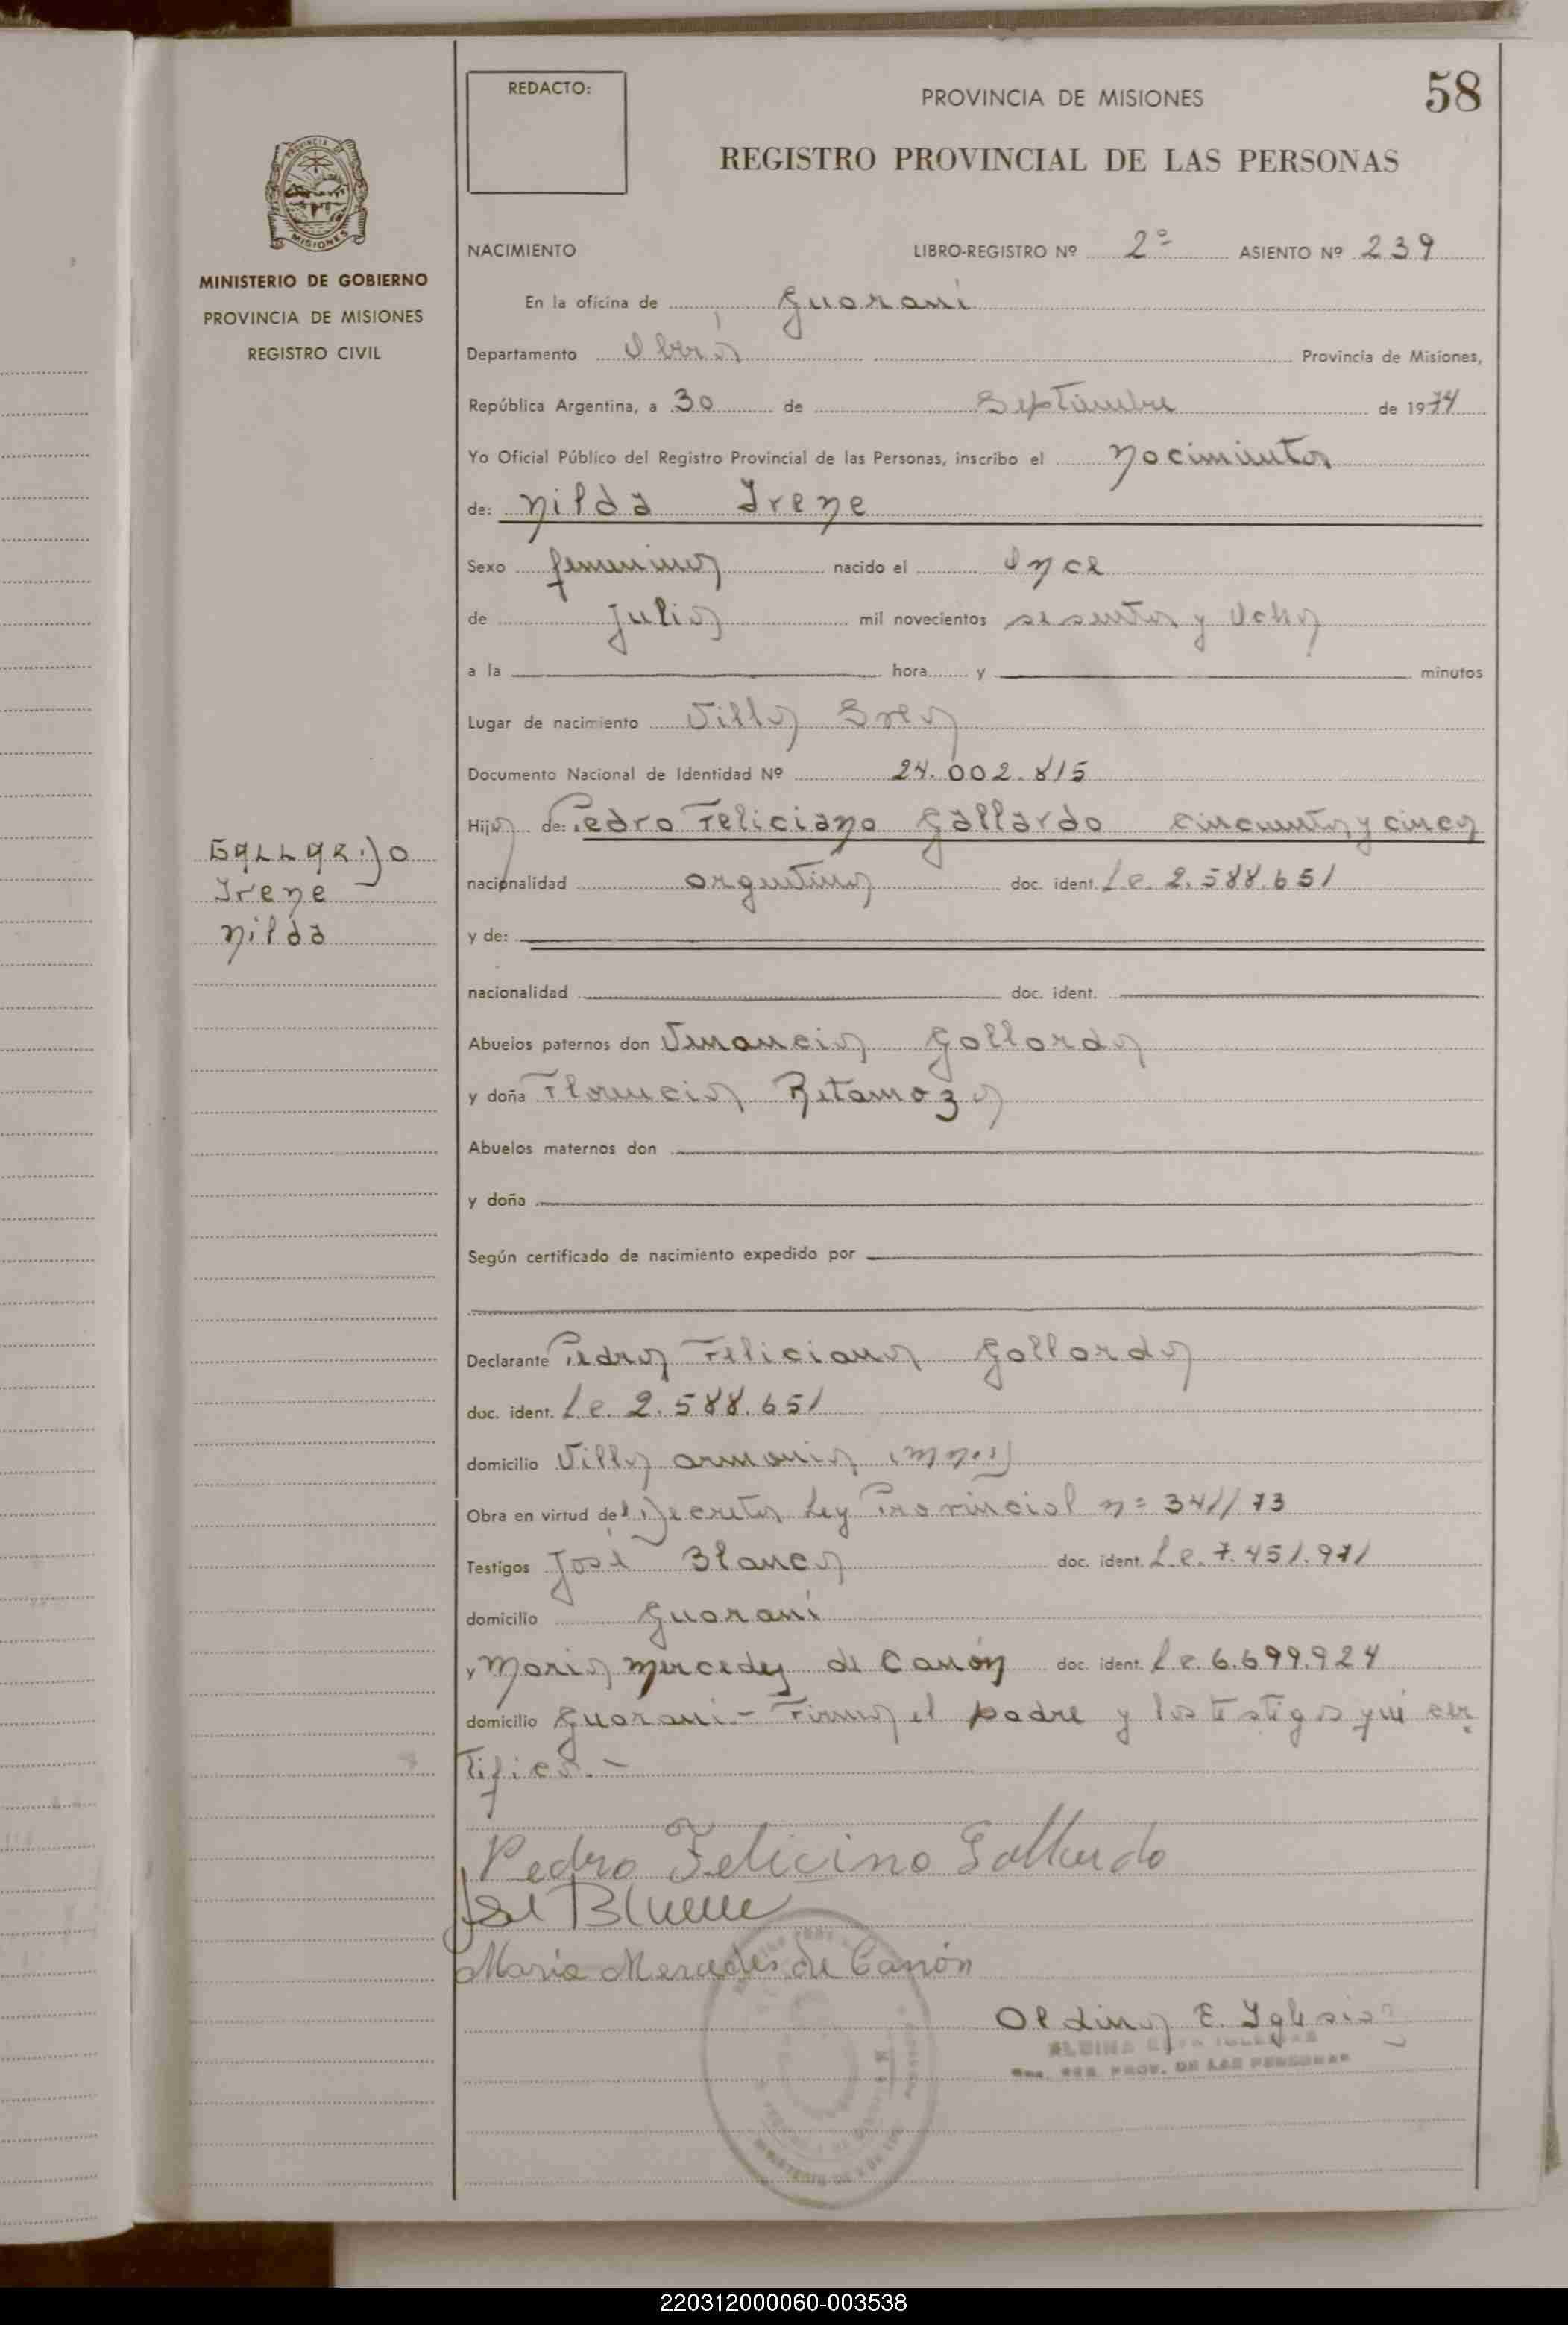 REDACTO:
PROVINCIA DE MISIONES
58
REGISTRO PROVINCIAL DE LAS PERSONAS
PROVINCIA DE
MISIONES
MINISTERIO DE GOBIERNO
PROVINCIA DE MISIONES
REGISTRO CIVIL
NACIMIENTO LIBRO-REGISTRO Nº 2º ASIENTO Nº 239
En la oficina de Guaraní
Departamento Oberá Provincia de Misiones,
República Argentina, a 30 de Septiembre de 1974
Yo Oficial Público del Registro Provincial de las Personas, inscribo el Nacimiento
de: Nilda Irene
Sexo femenino nacido el Once
de Julio mil novecientos sesenta y Ocho
a la hora y minutos
Lugar de nacimiento Villa
Documento Nacional de Identidad Nº 24.002.815
Hija de: Pedro Feliciano Gallardo cincuenta y cinco
GALLARDO
Irene
Nilda
nacionalidad argentina doc. ident. L.e. 2.588.651
y de:
nacionalidad doc. ident.
Abuelos paternos don Venancio Gallardo
y doña Florencia Retamozo
Abuelos maternos don
y doña
Según certificado de nacimiento expedido por
Declarante Pedro Feliciano Gallardo
doc. ident. L.e. 2.588.651
domicilio Villa armonia (Mnes)
Obra en virtud del Decreto Ley Provincial n= 341/73
Testigos José Blanco doc. ident. L.e. 7.451.971
domicilio Guaraní
y Maria Mercedes de Cañón doc. ident. L.e. 6.699.924
domicilio Guaraní.- Firma el padre y los testigos que cer
tifica.-
Pedro Felicino Gallardo
José Blanco
Maria Mercedes de Cañón
Aldina E. Iglesias
REG. PROV. DE LAS PERSONAS
220312000060-003538